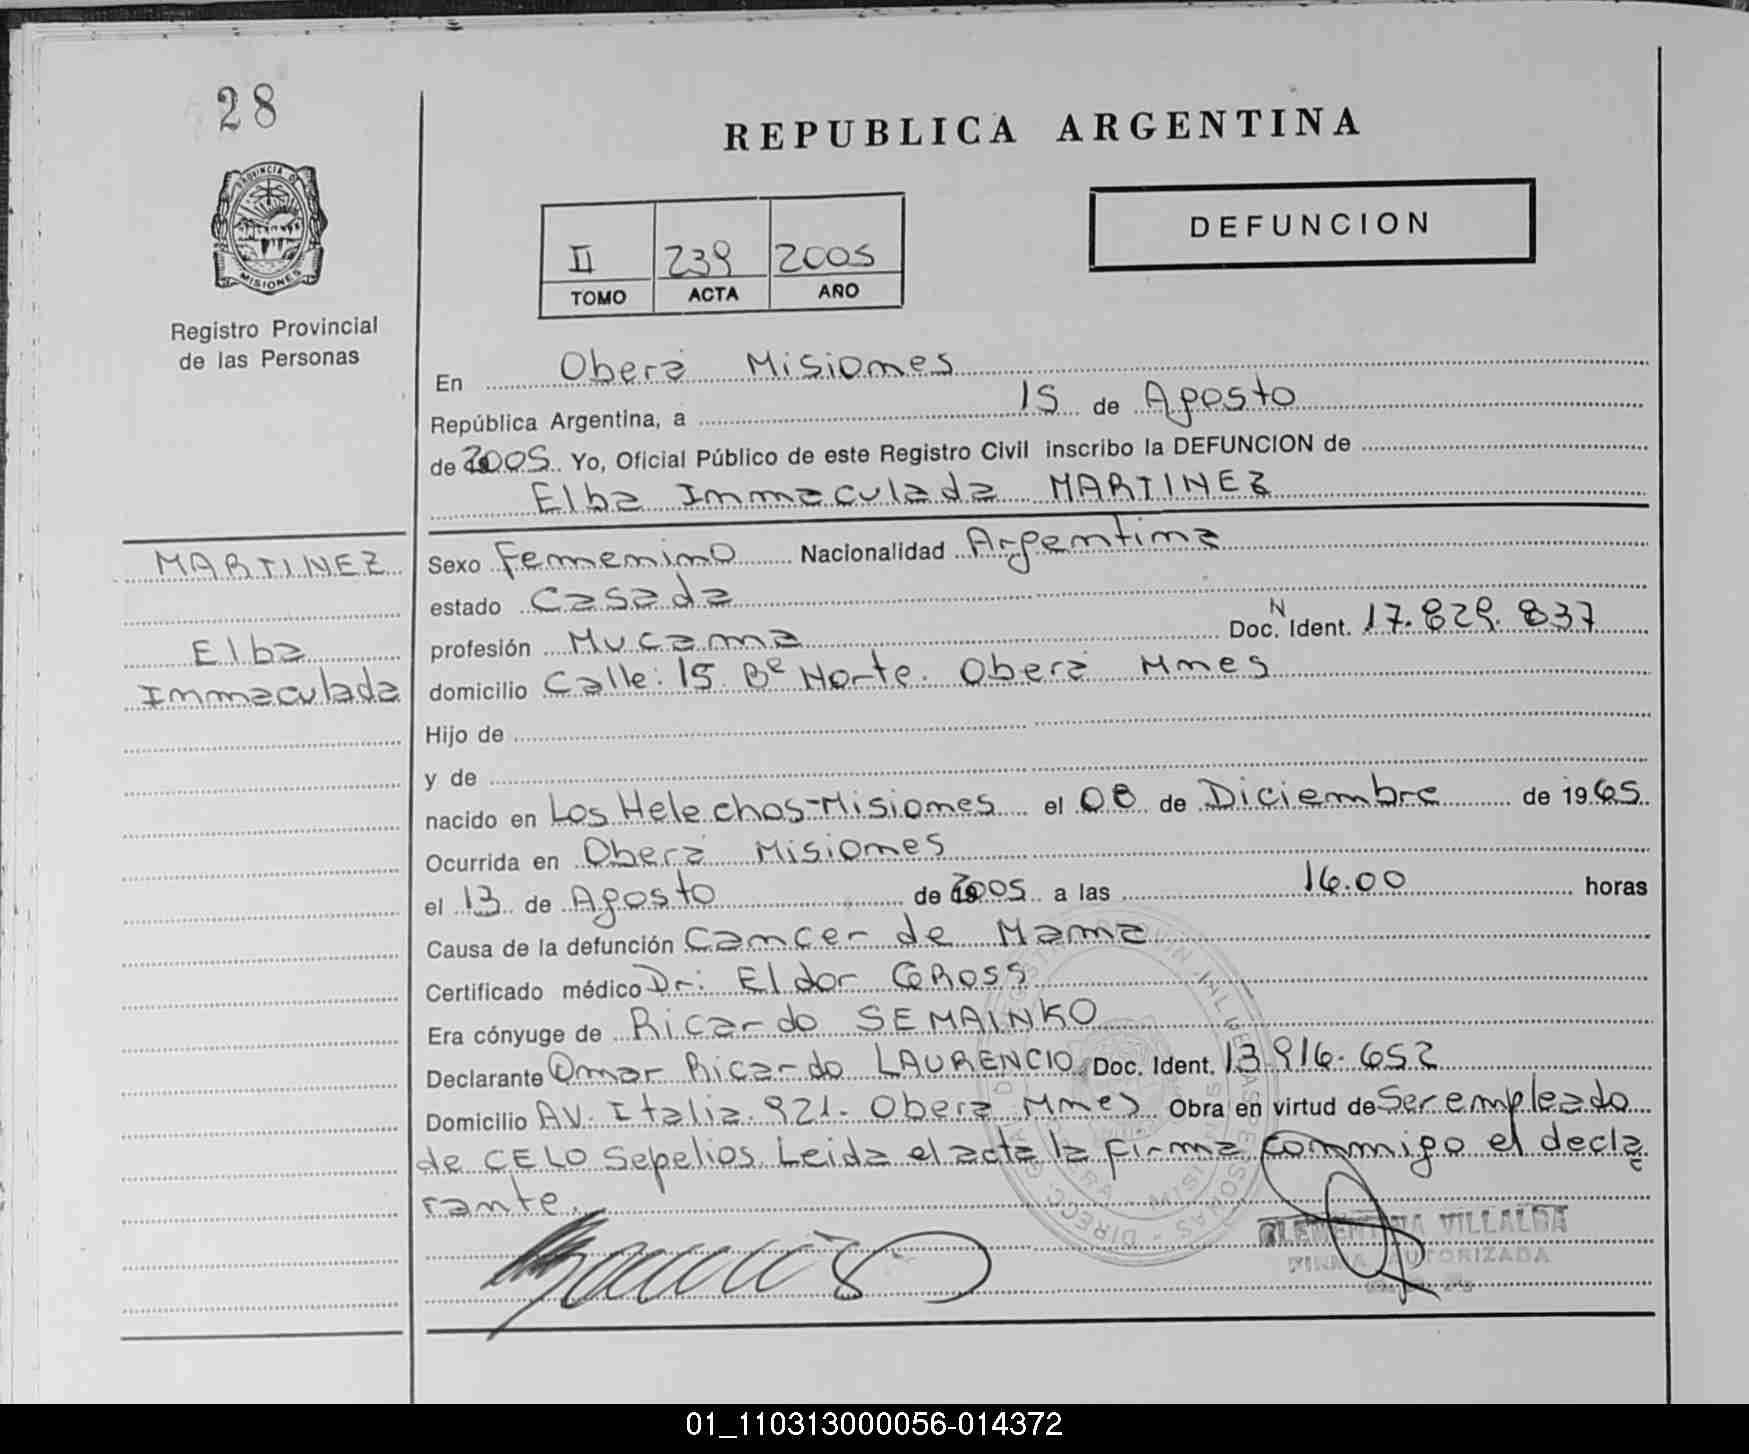 28
REPUBLICA ARGENTINA
PROVINCIA DE
MISIONES
DEFUNCION
II 239 2005
TOMO ACTA AÑO
Registro Provincial
de las Personas
En Oberá Misiones
República Argentina, a 15 de Agosto
de 2005 Yo, Oficial Público de este Registro Civil inscribo la DEFUNCION de
Elba Inmaculada MARTINEZ
MARTINEZ
Elba
Inmaculada
Sexo Femenino Nacionalidad Argentina
estado Casada
profesión Mucama Doc. N Ident. 17.829.837
domicilio Calle: 15 Bº Norte. Oberá Mnes
Hijo de
y de
nacido en Los Helechos-Misiones el 08 de Diciembre de 1965
Ocurrida en Oberá Misiones
el 13 de Agosto de 2005 a las 16.00 horas
Causa de la defunción Cancer de Mama
Certificado médico Dr: Eldor GROSS
Era cónyuge de Ricardo SEMAINKO
Declarante Omar Ricardo LAURENCIO Doc. Ident. 13.916.652
Domicilio AV. Italia. 921. Oberá Mnes Obra en virtud de Ser empleado
de CELO Sepelios. Leida el acta la firma conmigo el decla
rante.
CLEMENTINA VILLALBA
FIRMA AUTORIZADA
01_110313000056-014372